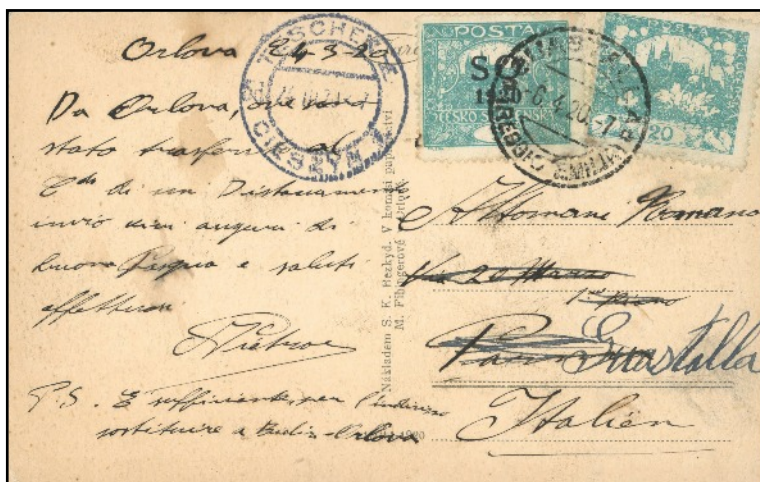 Orlova 24-3-20
Da Orlova, ove sono
stato trasferito al
C.do di un Distaccamento
invio vivi auguri di
buona Pasqua e saluti
affettuosi
Pietro
P.S. È sufficiente, per l'indirizzo
sostituire a Orlova
TESCHEN
CIESZYN
POSTA
SO
1920
ČESKO-SLOVENSKÁ
POSTA
20
6.4.20.-7
Nákladem S. K. Bezkyd. V komisi papírnictví
M. Fibingerové Orlové.
1920
Attomani Romano
Via 20 Marzo
1° Piano
Guastalla
Italien